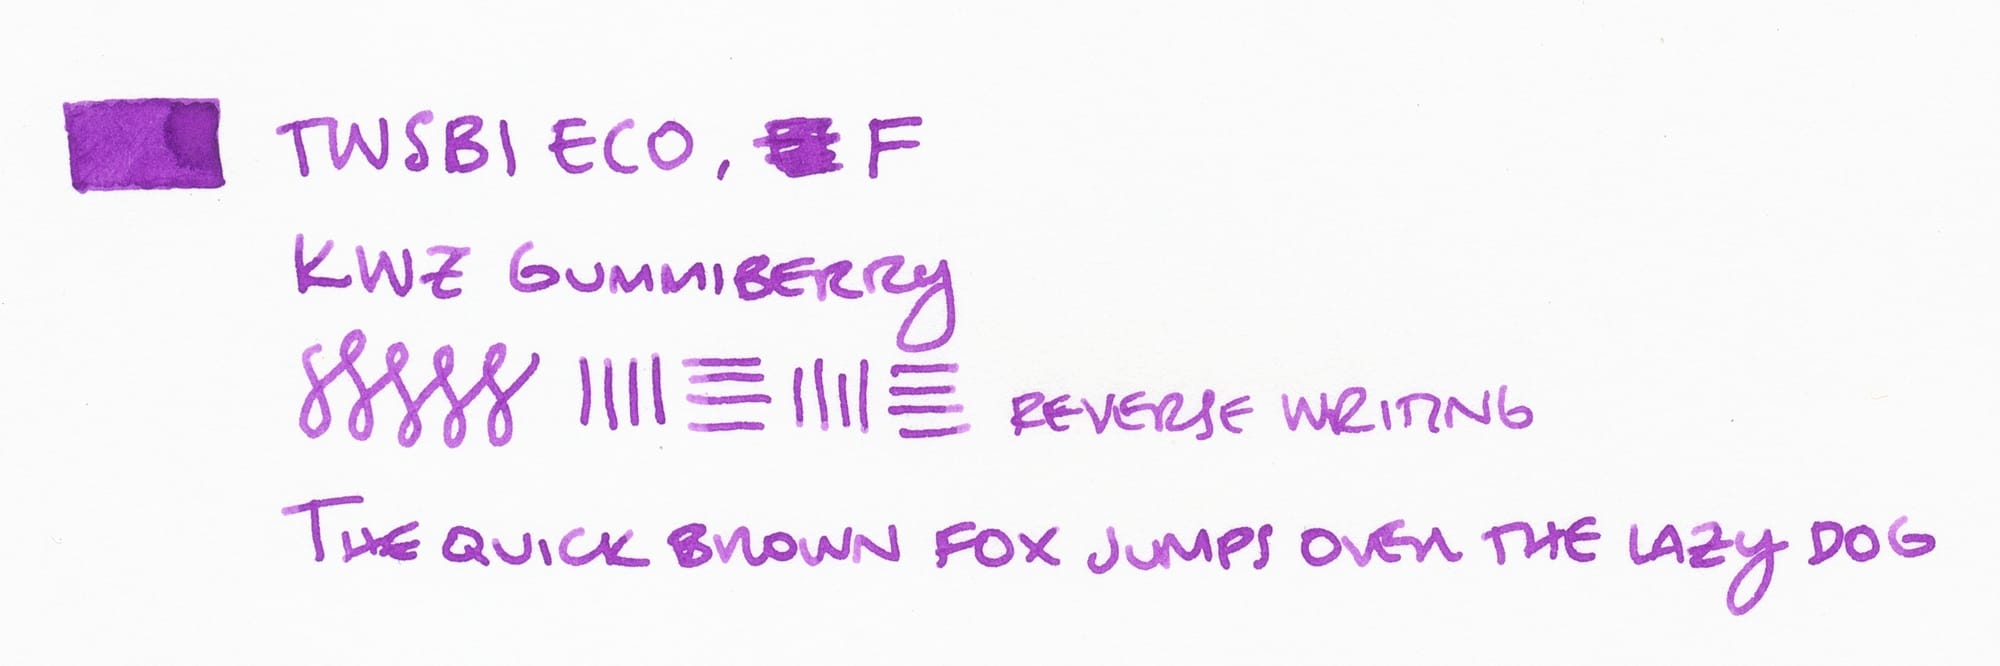 TWSBI ECO, F
KWZ GUMMIBERRY
REVERSE WRITING
THE QUICK BROWN FOX JUMPS OVER THE LAZY DOG